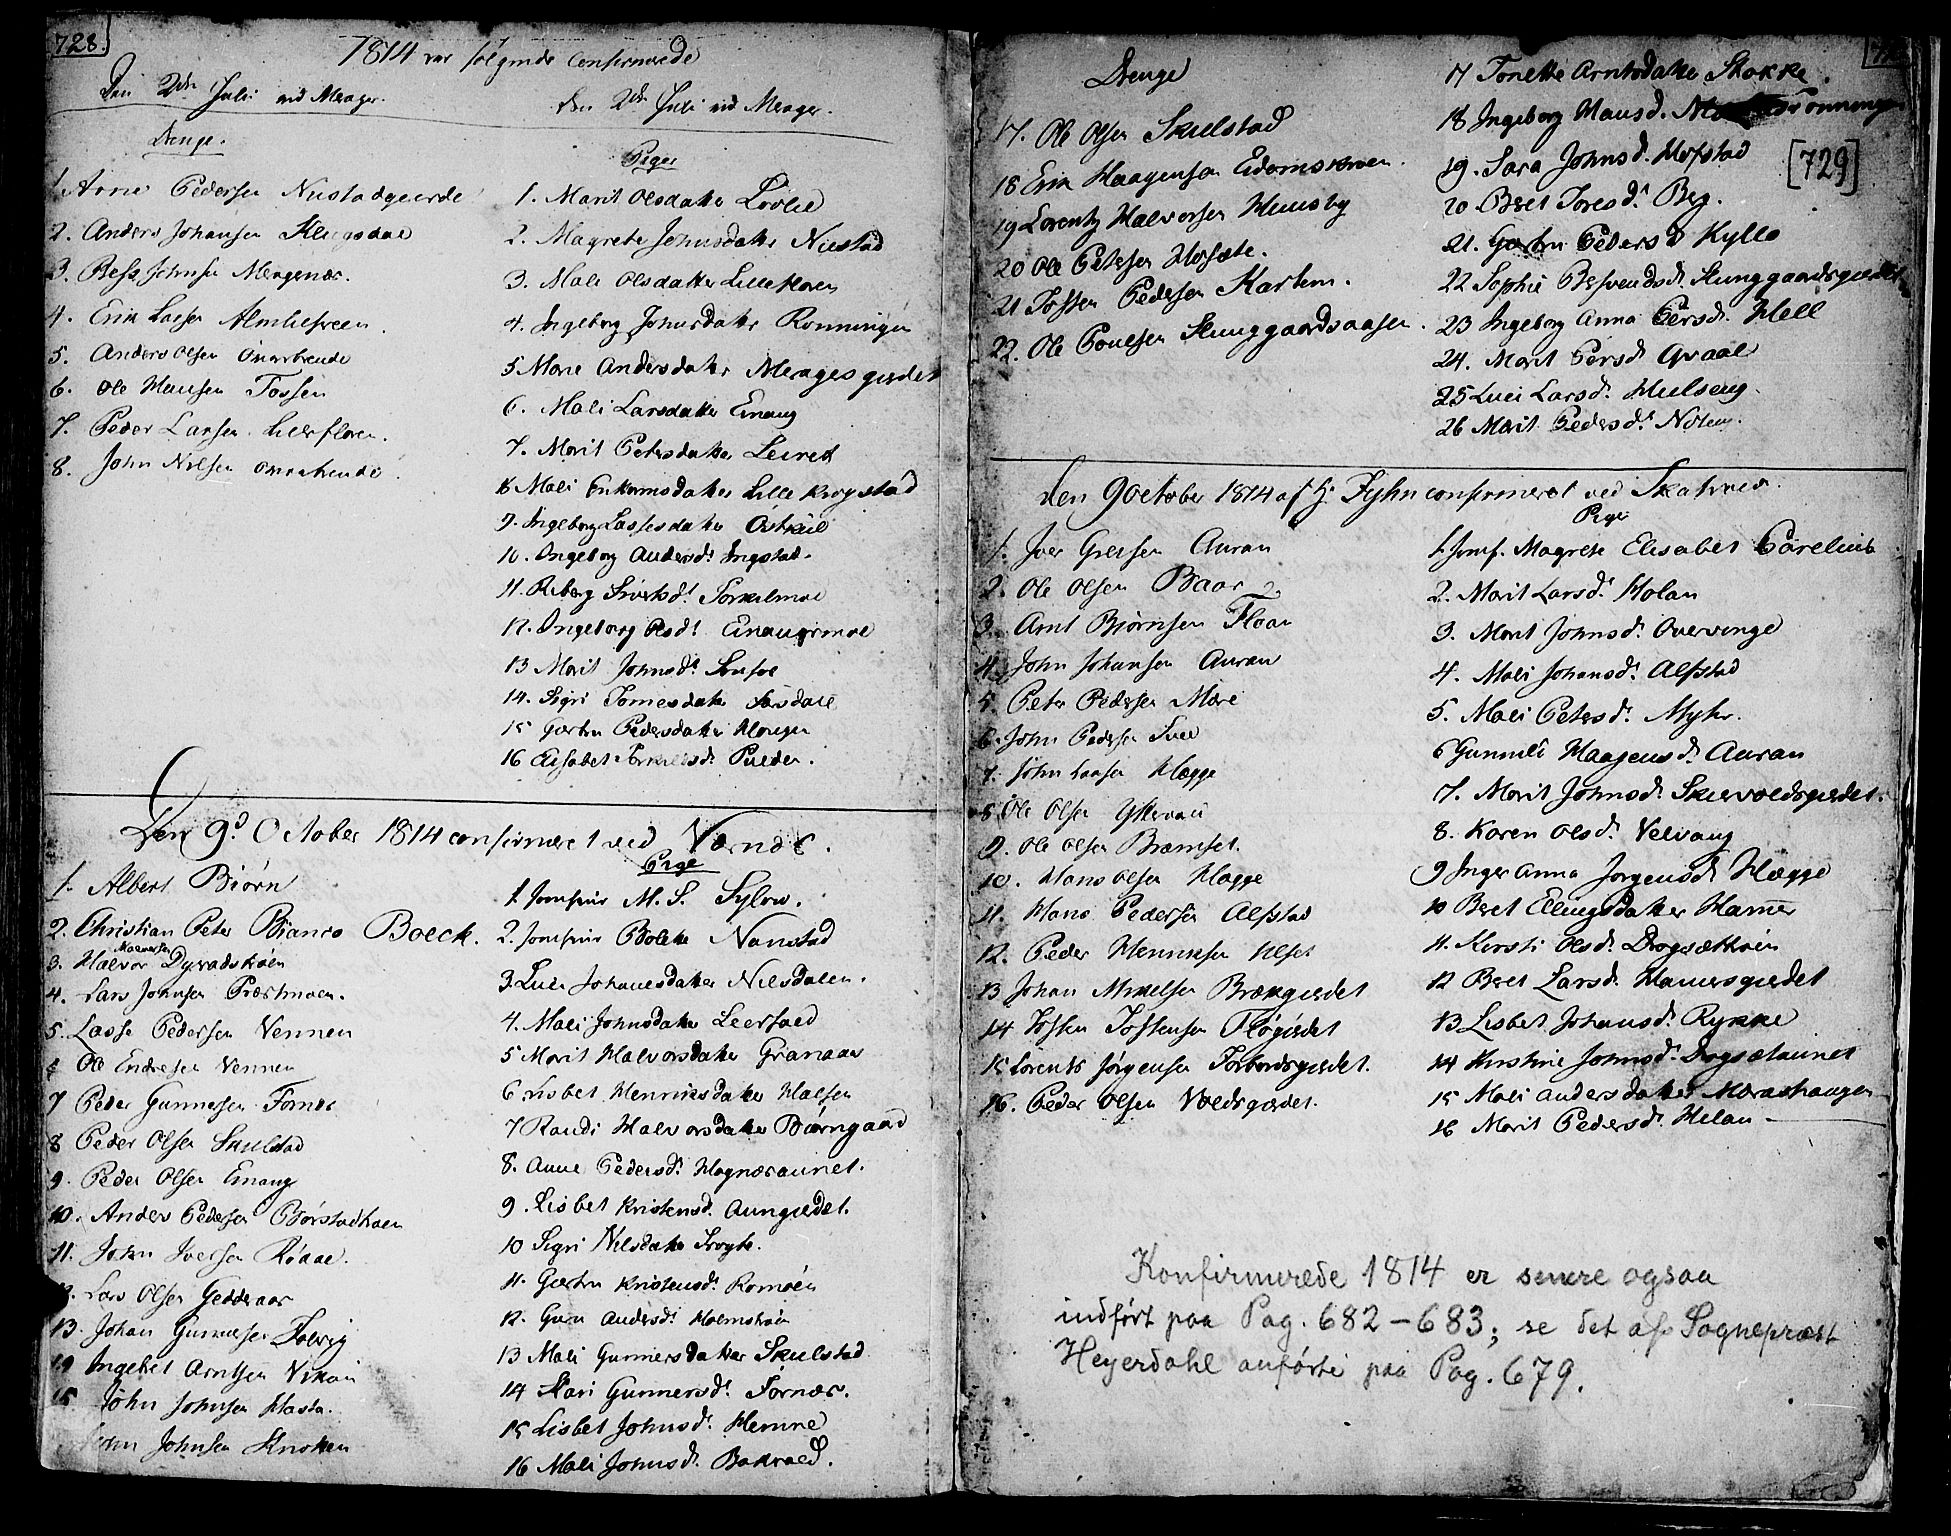 728.
1814 var følgende Confirmerede
Den 2den Juli ved Merager.
Drenge.
1. Arne Pedersen Nustadgierde
2. Anders Johansen
3. Johnsen Meragenæs.
4. Erik Lassen
5. Anders Olsen
6. Ole Hansen Fossen
7. Peder Larsen
8. John Nilsen
den 2den Juli ved Merager.
Piger
1. Marit Olsdatter Løvlie
2. Magrete Johnsdatter Nustad
3. Mali Olsdatter Lillefloren
4. Ingeborg Johnsdatter Rønningen
5 Mari Andersdatter Meragesgierdet
6. Mali Larsdatter Einang
7. Marit Petersdatter
8 Mali Lille Krogstad
9. Ingeborg Lassesdatter Østkiil
10. Ingeborg Andersdr. Ingstad.
11. Reberg Sivertsdr. Torkilmoe
12. Ingeborg Olsdr. Einangsmoe
13 Marit Johnsdr.
14. Sigri Tomesdatter
15 Giertru Pedersdatter
16 Elisabet
Den 9d. October 1814 confirmeret ved Værnæs.
1. Albert Biørn
2. Christian Peter Bianco Boeck.
3. Halvor Halvorsen Dyvadskaen
4. Lars Johnsen Præstmoen.
5. Lasse Pedersen Vennen
6 Ole Endresen Vennen
7 Peder Gunnersen Fornes
8 Peder Olsen Skulstad
9. Peder Olsen Einang
10. Anders Pedersen Børstadhaen
11. John Iversen Rødde.
12. Lars Olsen Gedderaas
13. Johan Gunnersen Solvig
14 Ingebret Arntsen Vikan
15 John Johnsen Hasta.
John Johnsen Knotten
Pige
1. Jomfrue M. S. Sylow.
2. Jomfrue Bolette Nanstad
3. Luci Johanesdatter Nilsdalen.
4. Mali Johnsdatter Leerfald
5 Marit Halvorsdatter Granaas
6 Lisbet Henriksdatter Halsen
7 Randi Halvorsdatter Biørngaard
8. Anne Pedersdr. Hognesaunet.
9. Lisbet Kristensd. Aungierdet.
10 Sigri Nilsdatter
11. Giertru Kristensdr. Romoen
12. Guru Andersdr. Holmskaen
13 Mali Gunnersdatter Skulstad
14 Kari Gunnersdr. Fornæs.
15 Lisbet Johnsdr. Hemne
16 Mali Johnsdr. Bakvold.
Drenge
17. Ole Olsen Skulstad
18 Erik Haagensen
19 Lorentz Halvorsen Huusby
20 Ole Petersen
21 Josten Pedersen Kartem.
22. Ole Povelsen Skunggaardsaasen.
17 Tonette Arntsdatter Stokke.
18 Ingeborg Hansd. Rønningen
19. Sara Johnsd. Hofstad
[729]
20 Beret Toresdr. Berg.
21. Giertru Pedersd. Kyllo
22 Sophie Skunggaardsgierdet
23 Ingeborg Anna Persdr. Hell
24. Marit Persdr. Qvaal
25 Luci Larsdr. Hulseng.
26 Marit Pedersdr.
den 9 October 1814 af Hr. Fyhn confirmeret ved Skatvold.
1. Iver Gretsen Auran
2. Ole Olsen Baar
3. Arnt Biørnsen Floan
4. John Johansen Auran
5. Peter Pedersen Mære
6. John Pedersen Svee
7. John Larsen Hegge
8. Ole Olsen Ytteraas
9. Ole Olsen Bremset.
10. Hans Olsen Hægge
11. Hans Pedersen Alfstad
12. Peder Henriksen Ulset
13 Johan Mikelsen Brækgierdet
14 Josten Jostensen Fløgierdet
15 Lorents Jørgensen Forbordsgierdet.
16. Peder Olsen Voldsgierdet.
Piger
1. Jomf. Magrete Elisabet Parelius
2. Marit Larsdr. Holan
3. Marit Johnsdr. Overvinge
4. Mali Johansdr. Alfstad
5. Mali Petersdr. Myhr.
6 Gunnild Haagensdr. Auran
7. Marit Johnsdr. Skiervoldsgierdet.
8. Karen Olsdr. Velvang
9 Inger Anna Jørgensdr. Hægge
10 Beret Ellingsdatter Hammer
11. Kersti Olsdr. Drogsætthoen
12 Beret Larsdr. Hamersgierdet
13 Lisbet Johansdr. Rykke
14 Kirstine Johnsdr. Drogsætaunet
15 Mali Andersdatter Morashaugen
16 Marit Pedersdr. Helan
Konfirmerede 1814 er senere ogsaa
indført paa Pag. 682-683; se det af Sogneprest
Heyerdahl anførte paa Pag. 679.